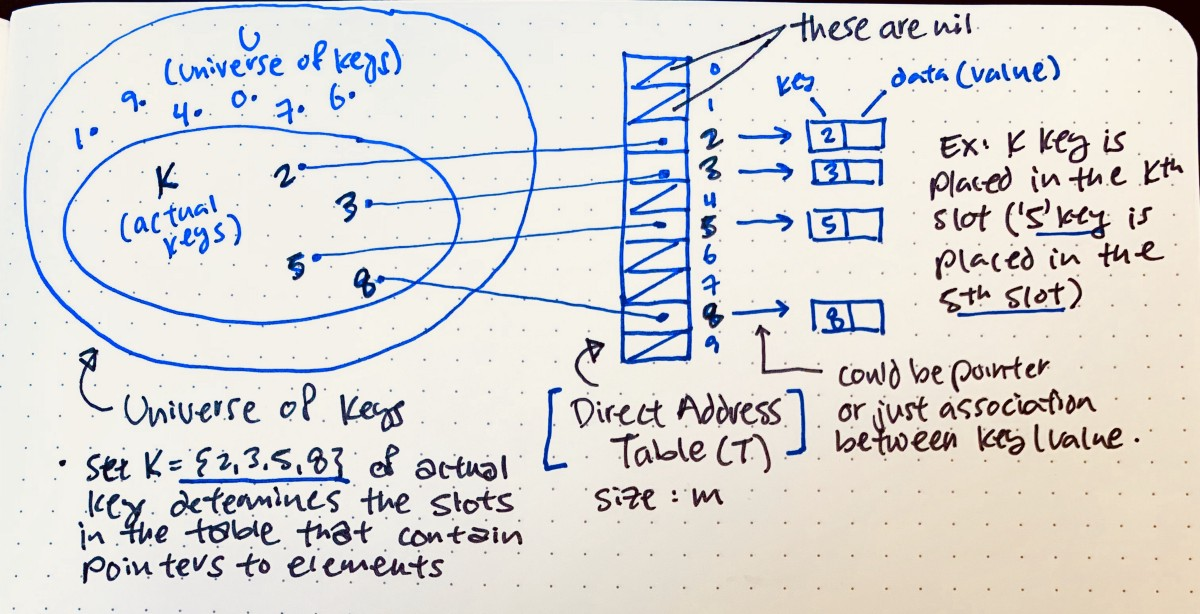 U
(universe of keys)
1. 9. 4. 0. 7. 6.
K
(actual
keys)
2
3
5
8
these are nil
0
1
2
3
4
5
6
7
8
9
key
data (value)
2
3
5
8
Ex: K key is
placed in the Kth
slot ('5' key is
placed in the
5th slot)
could be pointer
or just association
between key/value.
Universe of Keys
• Set K = {2,3,5,8} of actual
key determines the slots
in the table that contain
pointers to elements
[Direct Address
Table (T)]
size : m